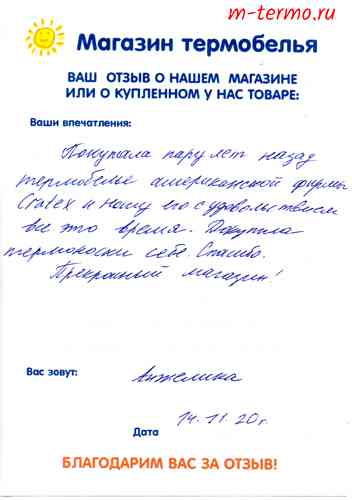 m-termo.ru
Магазин термобелья
ВАШ ОТЗЫВ О НАШЕМ МАГАЗИНЕ
ИЛИ О КУПЛЕННОМ У НАС ТОВАРЕ:
Ваши впечатления:
Покупала пару лет назад
термобелье американской фирмы
Cratex и ношу его с удовольствием
все это время. Докупила
термоноски себе. Спасибо.
Прекрасный магазин!
Вас зовут: Анжелика
14.11.20г.
Дата
БЛАГОДАРИМ ВАС ЗА ОТЗЫВ!